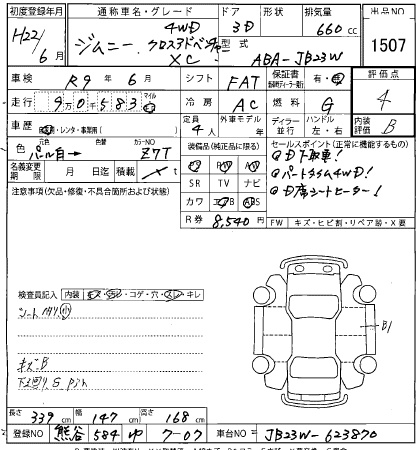 初度登録年月 通称車名・グレード ドア 形状 排気量 出品NO
H22/6 ジムニー 4WD クロスアドベンチャー XC 3D 660cc 1507
型式 ABA-JB23W
車検 R9年6月 シフト FAT 保証書 有・無 評価点
走行 9万0千583 マイル km 冷房 AC 燃料 G 4
車歴 自家用・レンタ・事業用( ) 定員 4人 外車モデル 年 ディーラー 並行 ハンドル 左・右 内装 B
色 元色 パール白→ 色替 カラーNO Z7T
装備品(純正品に限る) セールスポイント(正常に機能するもの)
名義変更期限 月 日迄 積載 t
PS PW AW
SR TV ナビ
カワ エアB ABS
R券 8,540円
①D下取車!
②パートタイム4WD!
③D席シートヒーター!
注意事項(欠品・修復・不具合箇所および状態)
FW キズ・ヒビ割・リペア装・X要
検査員記入 内装 キズ・汚レ・コゲ・穴・スレ・キレ
シート スリ 小
キズB
下廻りS
B1
長さ 339cm 幅 147cm 高さ 168cm
登録NO 熊谷 584 ゆ 7-07 車台NO JB23W-623870